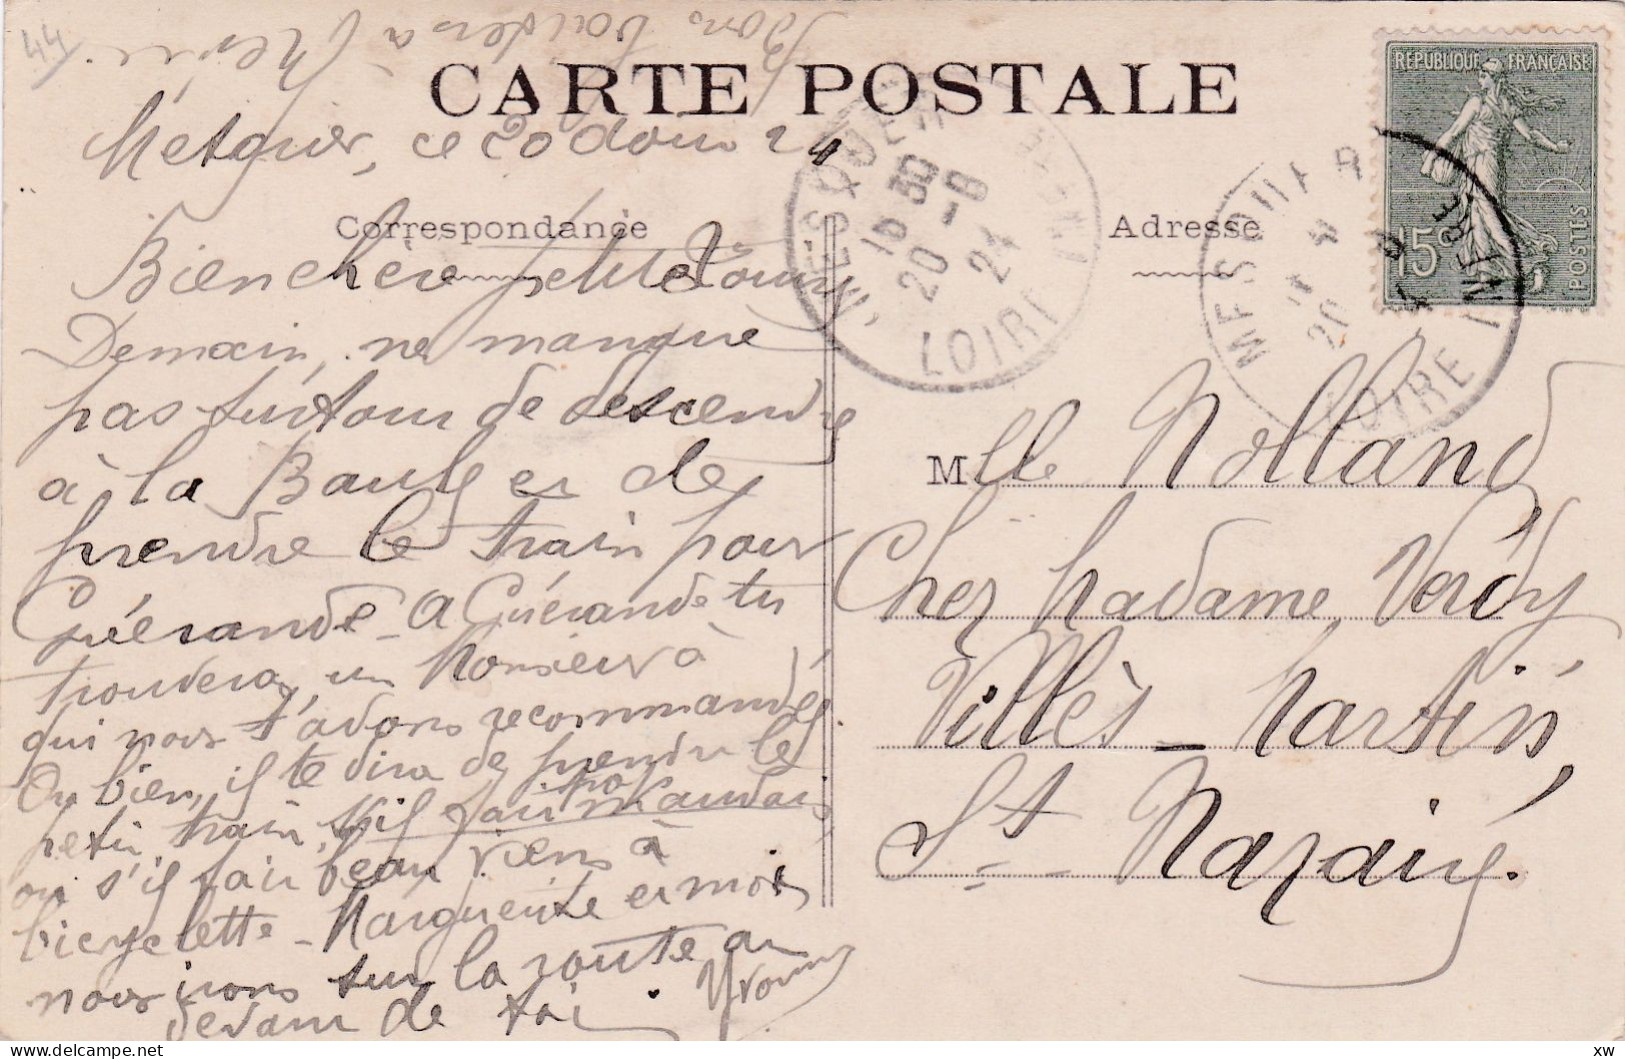 44
Bons baisers à
CARTE POSTALE
Mesquer, ce 20 aout 24
Correspondance
Adresse
Bien chère petite
Demain, ne manque
pas surtout de descendre
à la Baule et de
prendre le train pour
Guérande - A Guérande tu
trouveras un Monsieur à
qui nous t'avons recommandée
Ou bien, il te dira de prendre le
petit train, s'il fait trop mauvais,
ou s'il fait beau viens à
bicyclette - Marguerite et moi
nous irons sur la route au
devant de toi. Yvonne
MESQUER
15 30
20 -8
24
LOIRE INFRE
RÉPUBLIQUE FRANÇAISE
15c
POSTES
MESQUER
20
LOIRE INFRE
Mlle Rolland
Chez Madame Verdy
Villès-Martin,
St-Nazaire.
xw